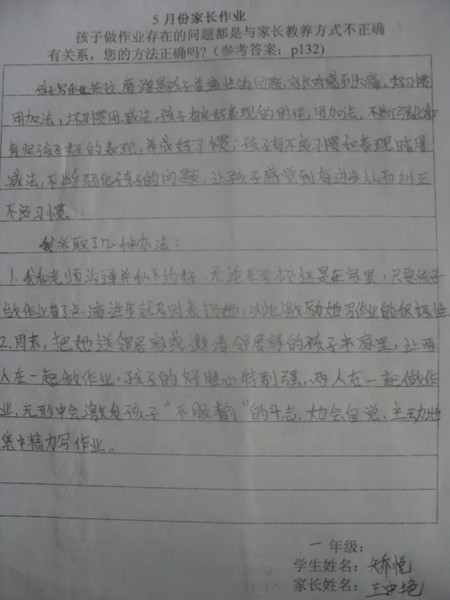 5月份家长作业
孩子做作业存在的问题都是与家长教养方式不正确
有关系，您的方法正确吗？（参考答案：p132）
孩子写作业拖拉、磨蹭是孩子普遍性的问题，家长时常感到头痛，好习惯
用加法，坏习惯用减法。孩子有良好表现的时候，用加法，不断强化和
肯定孩子好的表现，养成好习惯；孩子有不良习惯和表现时用
减法，不断弱化孩子的问题，让孩子感觉到有进步从而纠正
不良习惯。
我采取了几种办法：
1. 我和老师沟通并私下约好，无论在学校还是在家里，只要孩子
做作业有了点滴进步就及时表扬她，以此激励她写作业的积极性
2. 周末，把她送邻居家或邀请邻居家的孩子来家里，让两
人在一起做作业。孩子的好胜心特别强，两人在一起做作
业，无形中会激发孩子“不服输”的斗志，她会自觉、主动地
集中精力写作业。
一年级：
学生姓名：悦
家长姓名：王艳